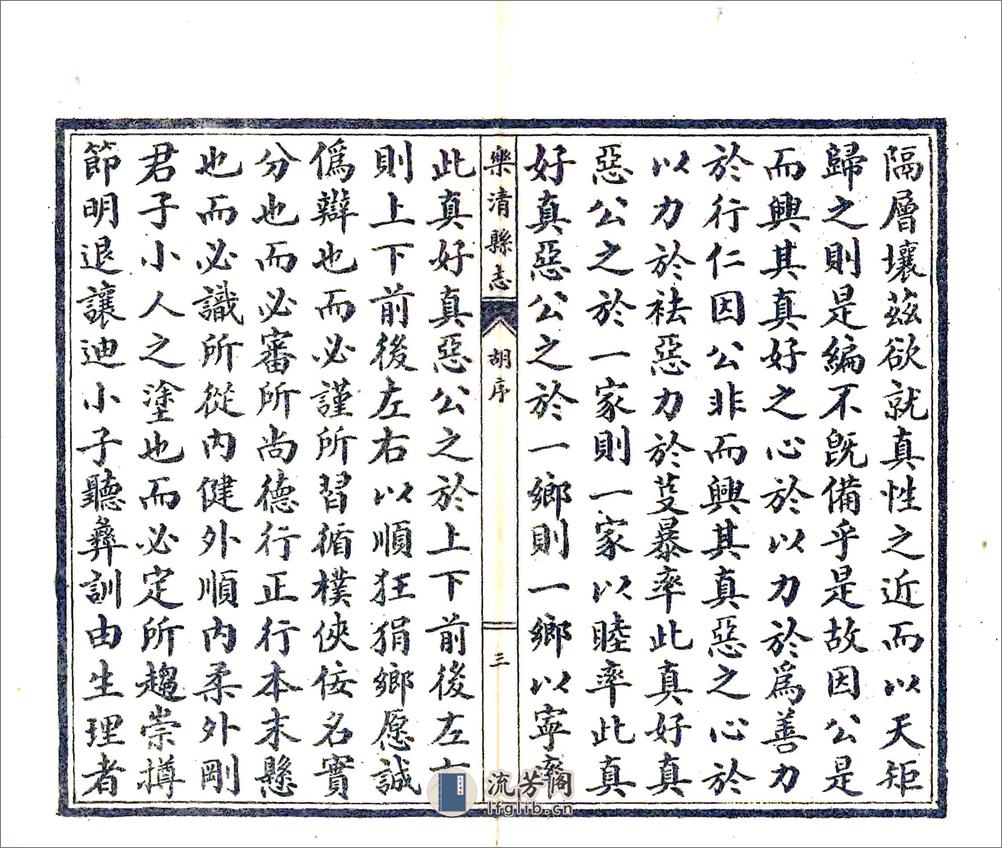 隔層壤茲欲就真性之近而以天矩
歸之則是編不既備乎是故因公是
而興其真好之心於以力於為善力
於行仁因公非而興其真惡之心於
以力於祛惡力於芟暴率此真好真
惡公之於一家則一家以睦率此真
好真惡公之於一鄉則一鄉以寧率
樂清縣志
胡序
三
此真好真惡公之於上下前後左右
則上下前後左右以順狂狷鄉愿誠
偽辯也而必謹所習循樸俠佞名實
分也而必審所尚德行正行本末懸
也而必識所從內健外順內柔外剛
君子小人之塗也而必定所趨崇撙
節明退讓迪小子聽彝訓由生理者
流芳阁
lfglib.cn